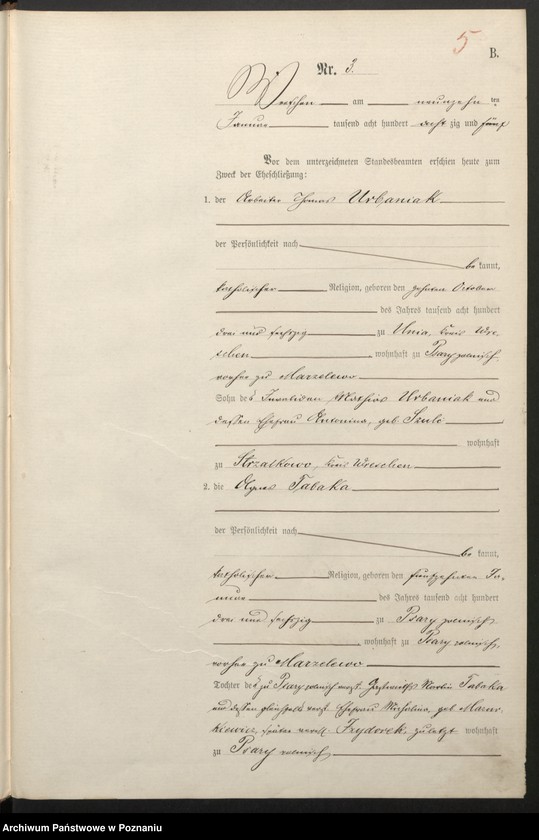 5
B.
Nr. 3.
Wreschen am neunzehnten
Januar tausend acht hundert acht zig und fünf
Vor dem unterzeichneten Standesbeamten erschien heute zum
Zweck der Eheschließung:
1. der Arbeiter Thomas Urbaniak
der Persönlichkeit nach
be kannt,
katholischer Religion, geboren den zehnten October
des Jahres tausend acht hundert
drei und sechszig zu Unia, Kreis Wre-
schen wohnhaft zu Psary polnisch
vorher zu Marzelewo
Sohn des Invaliden Mathias Urbaniak und
dessen Ehefrau Antonina, geb. Szulc
wohnhaft
zu Strzalkowo, Kreis Wreschen
2. die Agnes Tabaka
der Persönlichkeit nach
be kannt,
katholischer Religion, geboren den fünfzehnten Ja-
nuar des Jahres tausend acht hundert
drei und sechszig zu Psary polnisch
wohnhaft zu Psary polnisch,
vorher zu Marzelewo
Tochter des zu Psary polnisch verst. Martin Tabaka
und dessen gleichfalls verst. Ehefrau Michalina, geb. Marcin-
kiewicz, später Frydorek, zuletzt wohnhaft
zu Psary polnisch
Archiwum Państwowe w Poznaniu